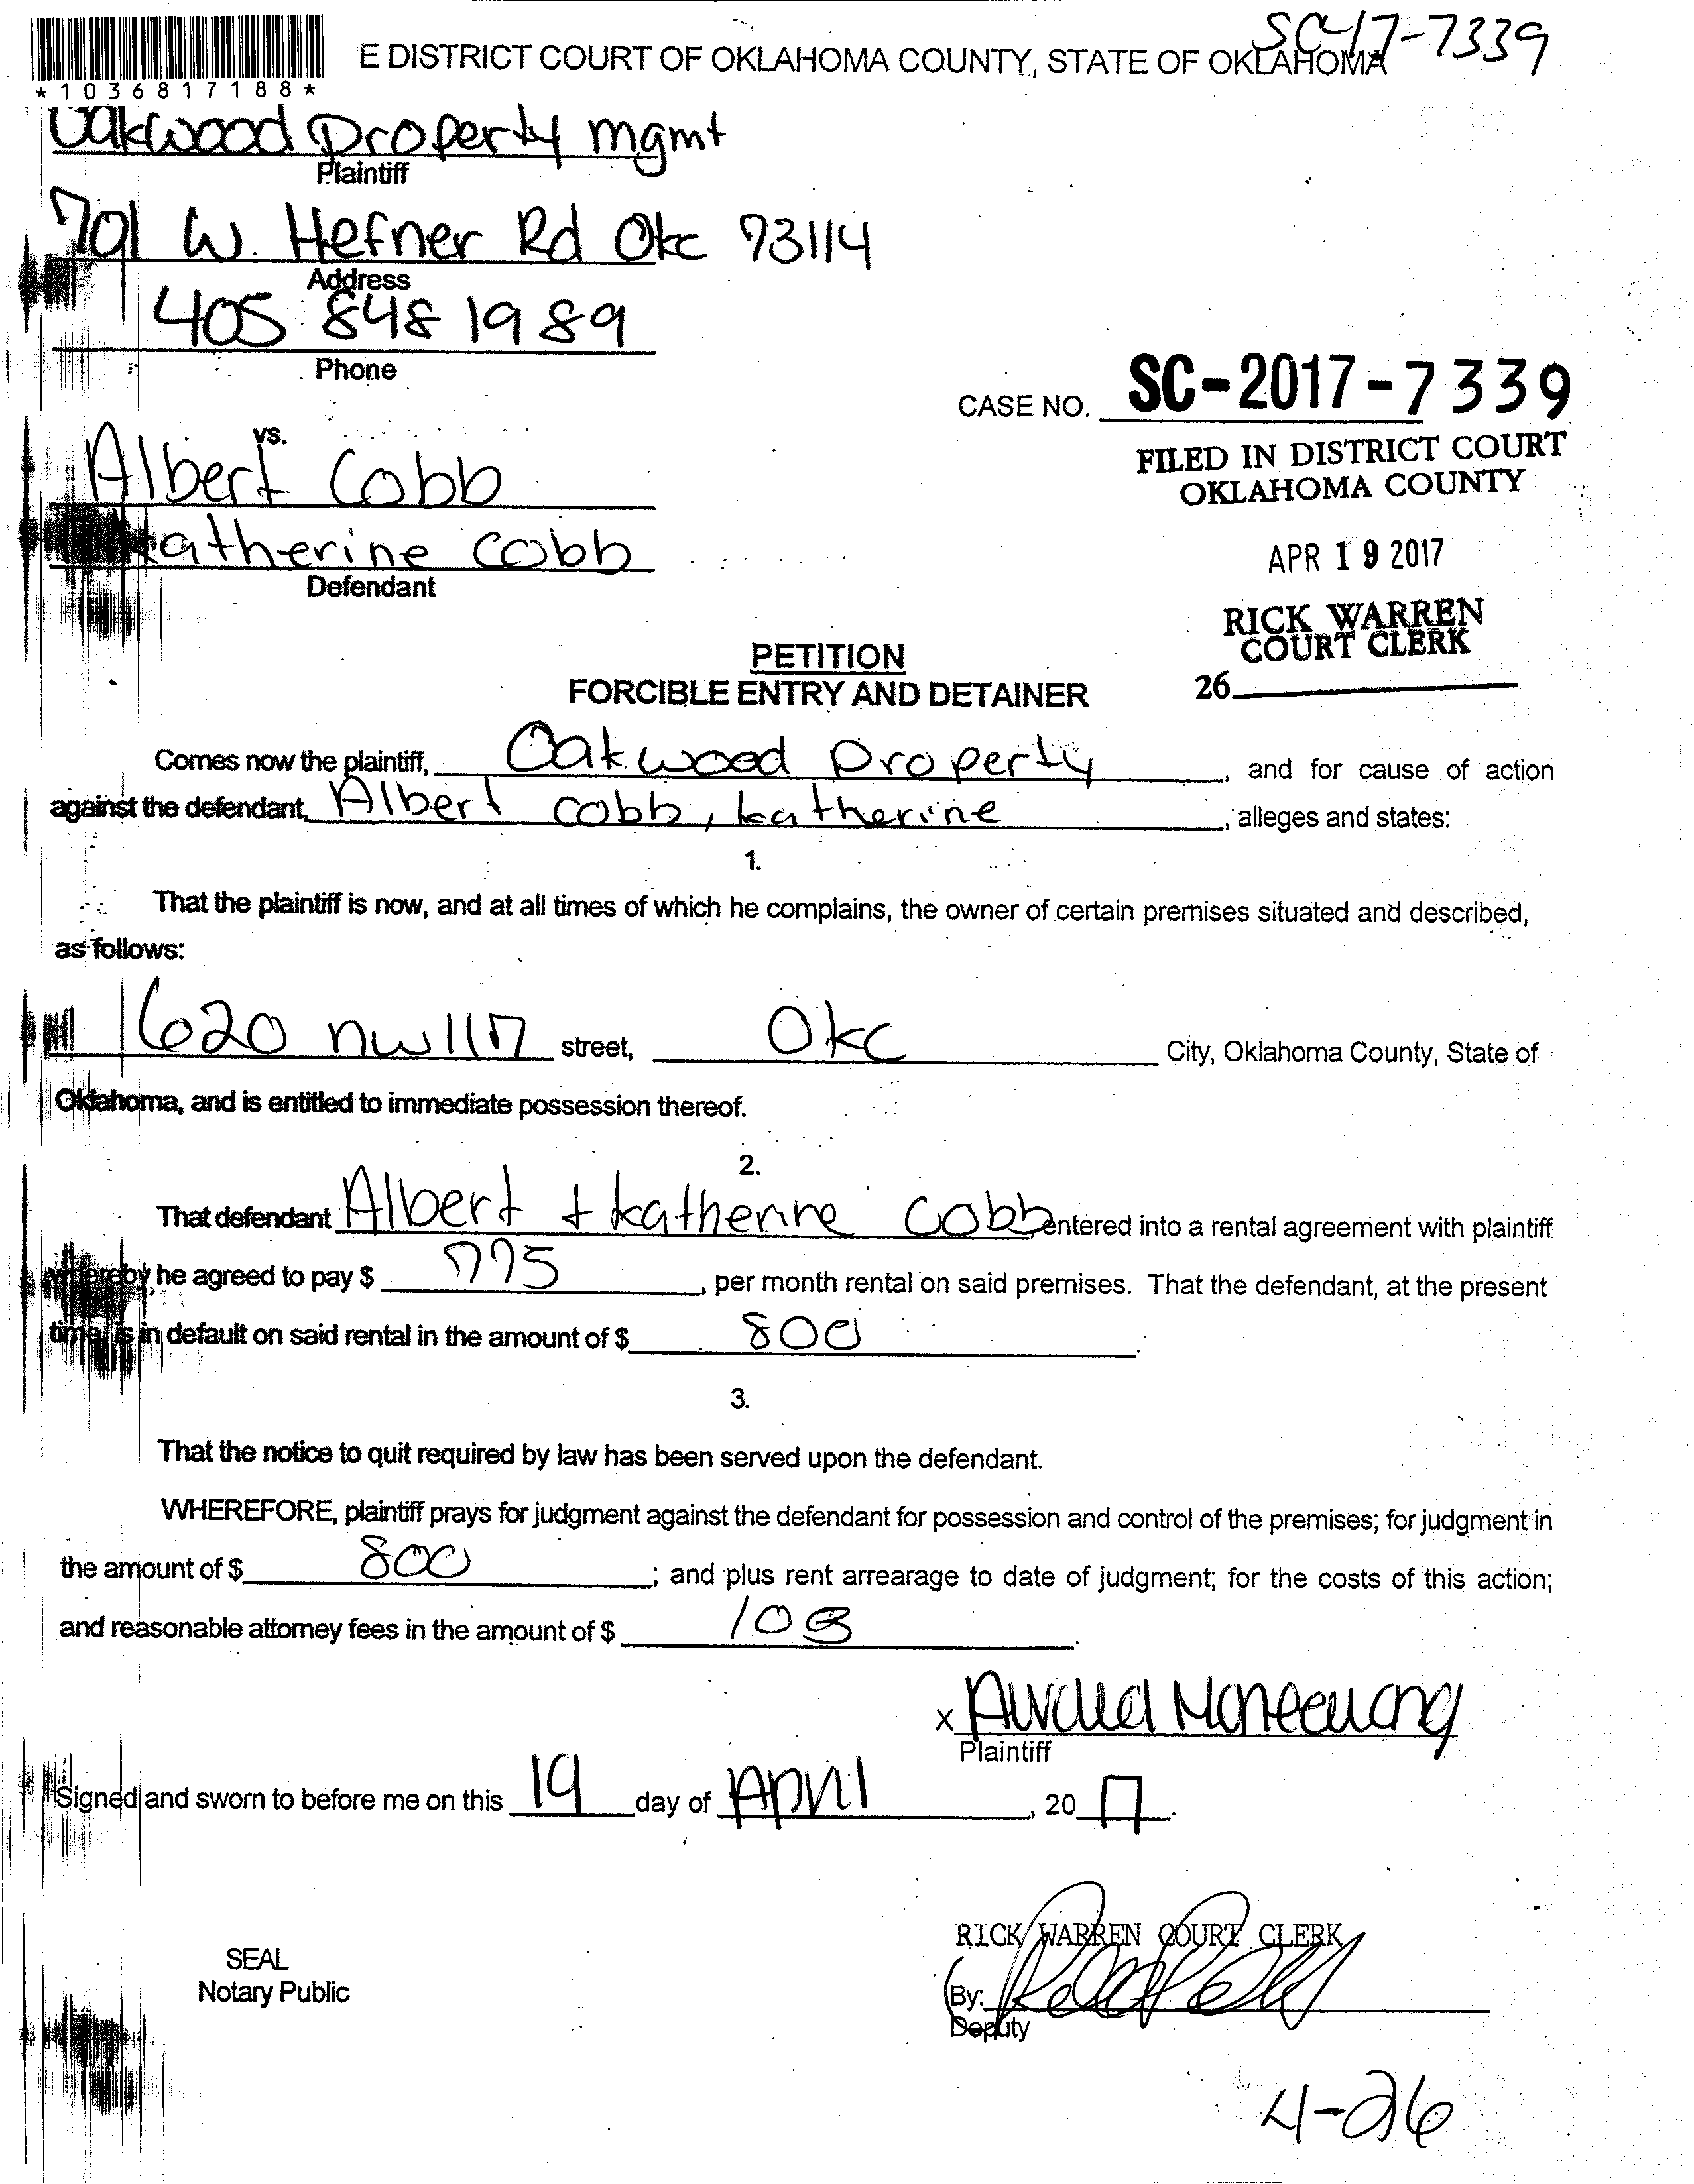 SC-17-7339
E DISTRICT COURT OF OKLAHOMA COUNTY, STATE OF OKLAHOMA
*1036817188*
Oakwood Property mgmt
Plaintiff
701 W. Hefner Rd Okc 73114
Address
405 848 1989
Phone
CASE NO. SC-2017-7339
vs.
FILED IN DISTRICT COURT
OKLAHOMA COUNTY
Albert Cobb
Katherine Cobb
Defendant
APR 19 2017
RICK WARREN
COURT CLERK
26
PETITION
FORCIBLE ENTRY AND DETAINER
Comes now the plaintiff, Oakwood Property, and for cause of action
against the defendant, Albert Cobb, Katherine, alleges and states:
1.
That the plaintiff is now, and at all times of which he complains, the owner of certain premises situated and described,
as follows:
1620 nw 117 street, Okc City, Oklahoma County, State of
Oklahoma, and is entitled to immediate possession thereof.
2.
That defendant Albert + Katherine Cobb entered into a rental agreement with plaintiff
whereby he agreed to pay $ 775, per month rental on said premises. That the defendant, at the present
time, is in default on said rental in the amount of $ 800.
3.
That the notice to quit required by law has been served upon the defendant.
WHEREFORE, plaintiff prays for judgment against the defendant for possession and control of the premises; for judgment in
the amount of $ 800; and plus rent arrearage to date of judgment; for the costs of this action;
and reasonable attorney fees in the amount of $ 103.
x
Plaintiff
Signed and sworn to before me on this 19 day of April, 20 17.
RICK WARREN COURT CLERK
SEAL
Notary Public
By:
Deputy
4-26